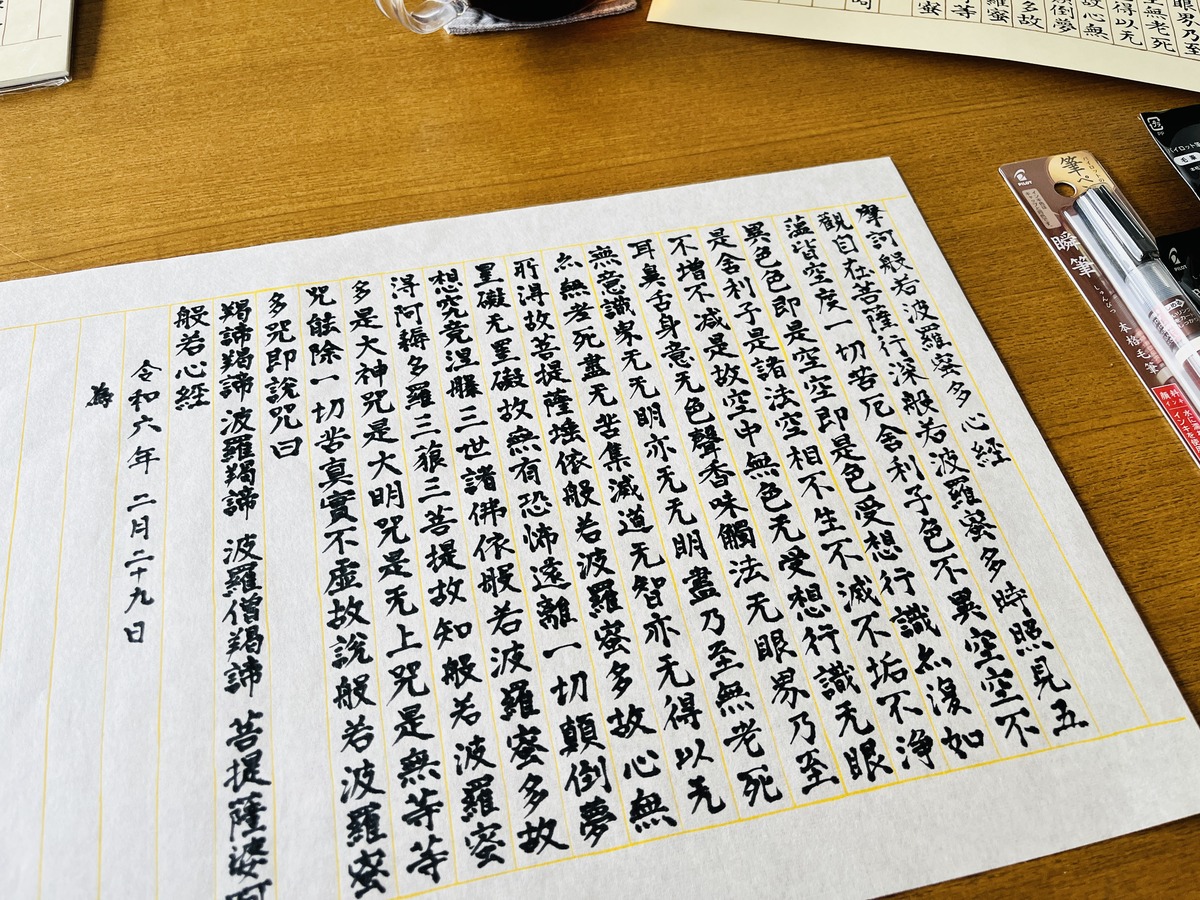 摩訶般若波羅蜜多心経
觀自在菩薩行深般若波羅蜜多時照見五
蘊皆空度一切苦厄舍利子色不異空空不
異色色即是空空即是色受想行識亦復如
是舍利子是諸法空相不生不滅不垢不浄
不增不减是故空中無色无受想行識无眼
耳鼻舌身意无色聲香味觸法无眼界乃至
無意識界无无明亦无无明盡乃至無老死
亦無老死盡无苦集滅道无智亦无得以无
所得故菩提薩埵依般若波羅蜜多故心無
罣礙无罣礙故無有恐怖遠離一切顛倒夢
想究竟涅槃三世諸佛依般若波羅蜜多故
得阿耨多羅三藐三菩提故知般若波羅蜜
多是大神咒是大明咒是无上咒是無等等
咒能除一切苦真實不虚故説般若波羅蜜
多咒即説咒曰
羯諦羯諦 波羅羯諦 波羅僧羯諦 菩提薩婆訶
般若心経
令和六年 二月二十九日
為
眼界乃至
無老死
得以无
故心無
顛倒夢
多故
羅蜜
等
蜜
PILOT
筆ペ
瞬筆
しゅんぴつ
本格毛筆
顔料
PILOT